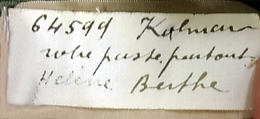 64599 Kalmar
robe passe partout
Hélène Berthe